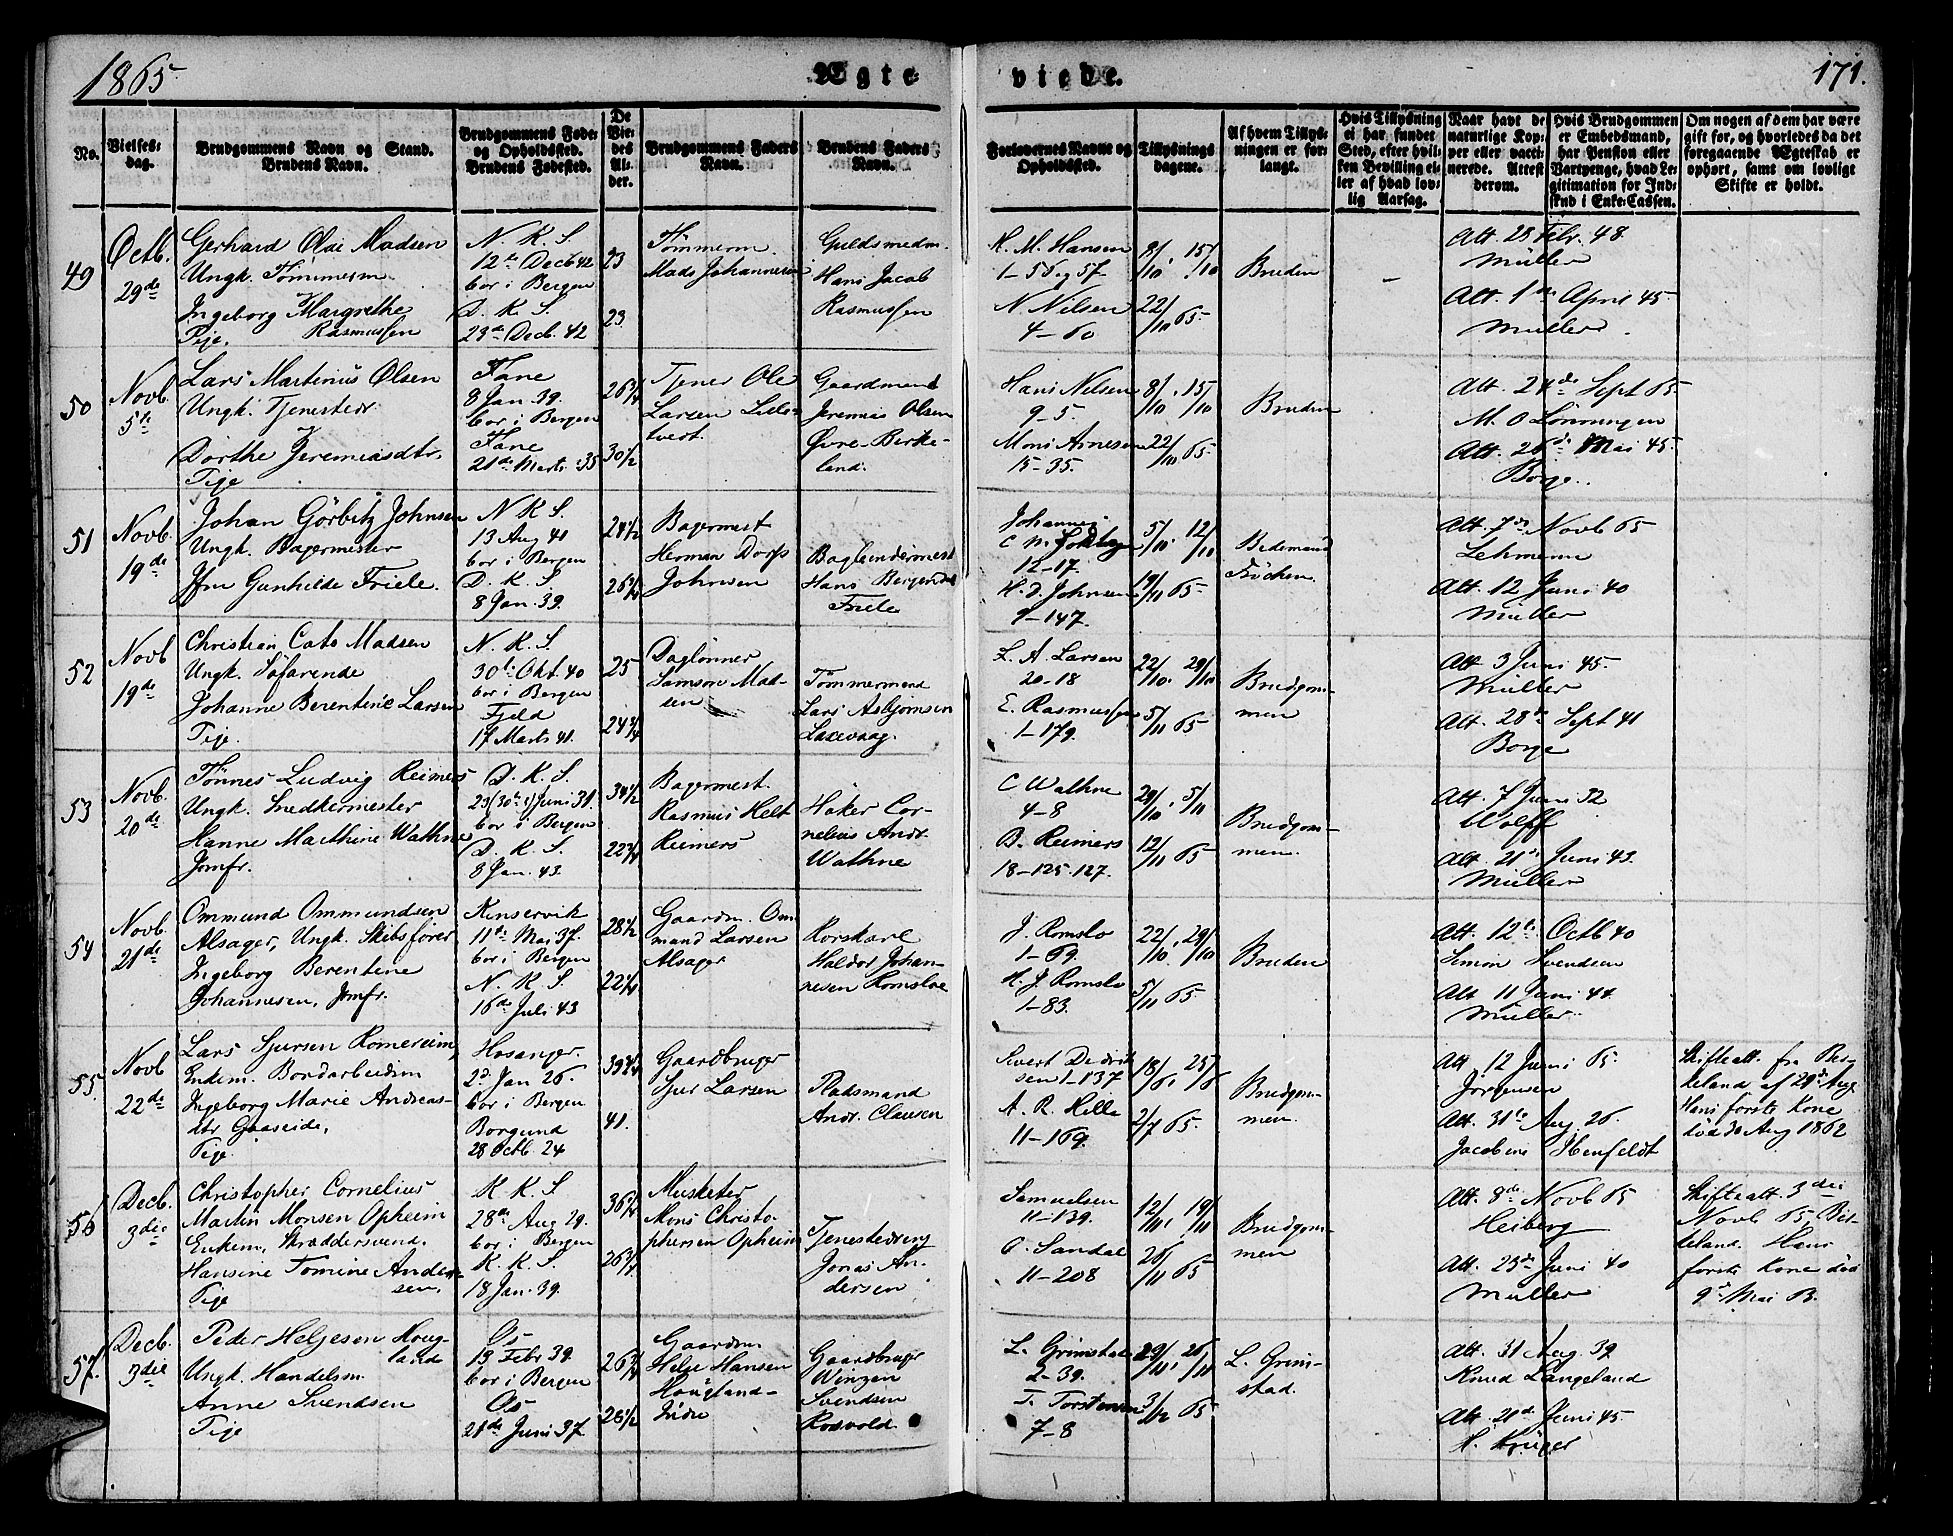 1865
Ægte
viede.
171.
No.
Vielses-
dag.
Brudgommens Navn og Stand.
Brudens Navn.
Brudgommens Føde-
og Opholdssted.
Brudens Fødested.
De
Vie-
des
Al-
der.
Brudgommens Faders
Navn.
Brudens Faders
Navn.
Forlovernes Navne og
Opholdssted.
Tillysnings
dagene.
Af hvem Tillys-
ningen er for-
langt.
Hvis Tillysning
ei har fundet
Sted, efter hvil-
ken Bevilling el-
ler af hvad lov-
lig Aarsag.
Naar havt de
naturlige Kop-
per eller vacci-
nerede. Attest
derom.
Hvis Brudgommen
er Embedsmand,
har Pension eller
Vartpenge, hvad Le-
gitimation for Ind-
skud i Enke-Cassen.
Om nogen af dem har være
gift før, og hvorledes da det
foregaaende Ægteskab er
ophørt, samt om lovligt
Skifte er holdt.
49
Octb.
29de
Gerhard Olai Madsen
Ungk. Tømmerm
Ingeborg Margrethe
Rasmussen
Pige.
N. K. S.
12te Decb 42
bor i Bergen
D. K. S.
23de Decb. 42
23
23
Tømmerm
Mads Johannesen
Guldsmedm.
Hans Jacob
Rasmussen
N. M. Hansen
1-56 og 57
N Nilsen
4-60
8/10. 15/10
22/10 65
Bruden
-
Att. 28 Febr. 48
Müller
Att. 1ste April 45
Müller
50
Novb.
5te
Lars Martinus Olsen
Ungk. Tjenestedr
Dorthe Jeremiasdtr.
Pige
Fane
8 Jan 39.
bor i Bergen
Fane
21de Marts 35
26 3/4
30 1/2
Tjener Ole
Larsen
Gaardmand
Jeremias Olsen
Øvre-Birke-
land.
Hans Nilsen
9-5.
Mons Arnesen
15-35.
8/10. 15/10
22/10 65
Bruden
Att. 24de Sept 65
M. O Lønningen
Att. 26de Mai 45
Borge.
51
Novb.
19de
Johan Görbitz Johnsen
Ungk. Bagermester
Jfm Gunhilde Friele.
N K S
13 Aug 41
bor i Bergen
D. K. S
8 Jan. 39.
24 1/2
26 3/4
Bagermest
Herman Dorfs
Johnsen
Bagbindermest
Hans Bergendal
Friele
Johannes
12-17.
H. D. Johnsen
9-147.
5/10. 12/10
19/11 65
Bedemand
Att. 7de Novb 65
Lehmann
Att. 12 Juni 40
Müller
52
Novb
19de
Christian Cato Madsen
Ungk. Søfarende
Johanne Berentine Larsen
Pige.
N. K. S.
30te Okt. 40
bor i Bergen
Fjeld
17 Marts 41.
25
24 3/4
Daglønner
Samson Mad-
sen
Tømmermand
Lars Asbjørnsen
Laxevaag.
L. A. Larsen
20-18
E. Rasmussen
1-179.
22/10. 29/10
5/11 65
Brudgom-
men
Att. 3 Juni 45.
Müller
Att. 28de Sept 41
Borge
53
Novb.
20de
Tönnes Ludvig Reimers
Ungk. Snedkermester
Hanne Mathine Wathne
Jomfr.
D. K. S.
23 (30te) Juni 31.
bor i Bergen
D. K. S.
8 Jan. 43.
34 1/2
22 3/4
Bagermest.
Rasmus Helt
Reimers
Høker Cor-
nelius Andr.
Wathne
C Wathne
4-8
B. Reimers
18-125.127.
29/10. 5/11
12/11 65
Brudgom-
men.
Att. 7 Juni 32
Wolff
Att. 21de Juni 43.
Müller
54
Novb.
21de
Ommund Ommundsen
Alsager, Ungk. Skibsfører
Ingeborg Berentine
Johannesen, Jomfr.
Kinservik
11te Mai 37.
bor i Bergen
N. K. S.
16de Juli 43
28 1/2
22 1/4
Gaardm. Om-
mund Larsen
Alsager
Rorskarl
Haldor Johan-
nesen Romsloe
J. Romslo
1-69.
H. J. Romslo
1-83.
22/10. 29/10
5/11 65
Bruden
Att. 12te Octb 40
Simon Svendsen
Att 11 Juni 44.
Müller
55
Novb
22de
Lars Sjursen Romereim
Enkem. Bordarbeidm
Ingeborg Marie Andreas-
dtr Gaaseide,
Pige.
Hosanger.
2d. Jan 26.
bor i Bergen
Borgund
28 Octb. 24
39 3/4
41.
Gaardbruger
Sjur Larsen
Pladsmand
Andr. Clausen
Sivert Didrik-
sen 1-137
A. R. Hille
11-169.
18/6. 25/6
2/7 65.
Brudgom-
men.
Att 12 Juni 65.
Jörgensen
Att. 31te Aug 26.
Jacobine
Skifteatt. fra Ber-
keland af 29de Aug
Hans første Kone
død 30 Aug 1862
56
Decb.
3die
Christopher Cornelius
Martin Monsen Opheim
Enkem. Skræddersvend.
Hansine Tomine Ander-
sen,
Pige
K K S
28de Aug 29.
bor i Bergen
K. K. S
18 Jan. 39.
36 1/4
26 3/4
Musketer
Mons Christo-
phersen Opheim
Tjenestedreng
Jonas An-
dersen
Samuelsen
11-139.
O. Sandal
11-208
12/11. 19/11
26/11 65
Brudgom-
men
Att. 8de Novb 65
Heiberg
Att. 23de Juni 40
Müller
Skifteatt. 3die
Novb 65,
Hans
første Kone død
9de Mai
57.
Decb.
3die
Peder Helgesen Houg-
land
Ungk. Handelsm.
Anne Svendsen
Pige
Os
13 Febr 39.
bor i Bergen
Os
21de Juni 37
26 3/4
28 1/2
Gaardm
Helge Hansen
Hougland-
Indre
Gaardbruger
Winzen
Svendsen
Rosvold.
L. Grimstad
2-39.
T. Torstensen
7-8
29/11. 26/11
3/12 65
L. Grim-
stad.
Att. 31 Aug. 39
Knud Langeland
Att. 21de Juni 45
H. Krüger